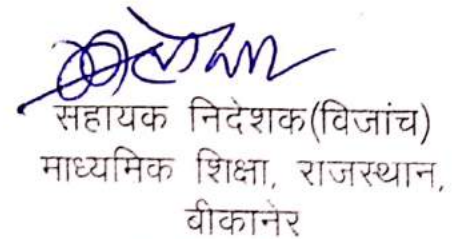 सहायक निदेशक(विजांच)
माध्यमिक शिक्षा, राजस्थान,
वीकानेर